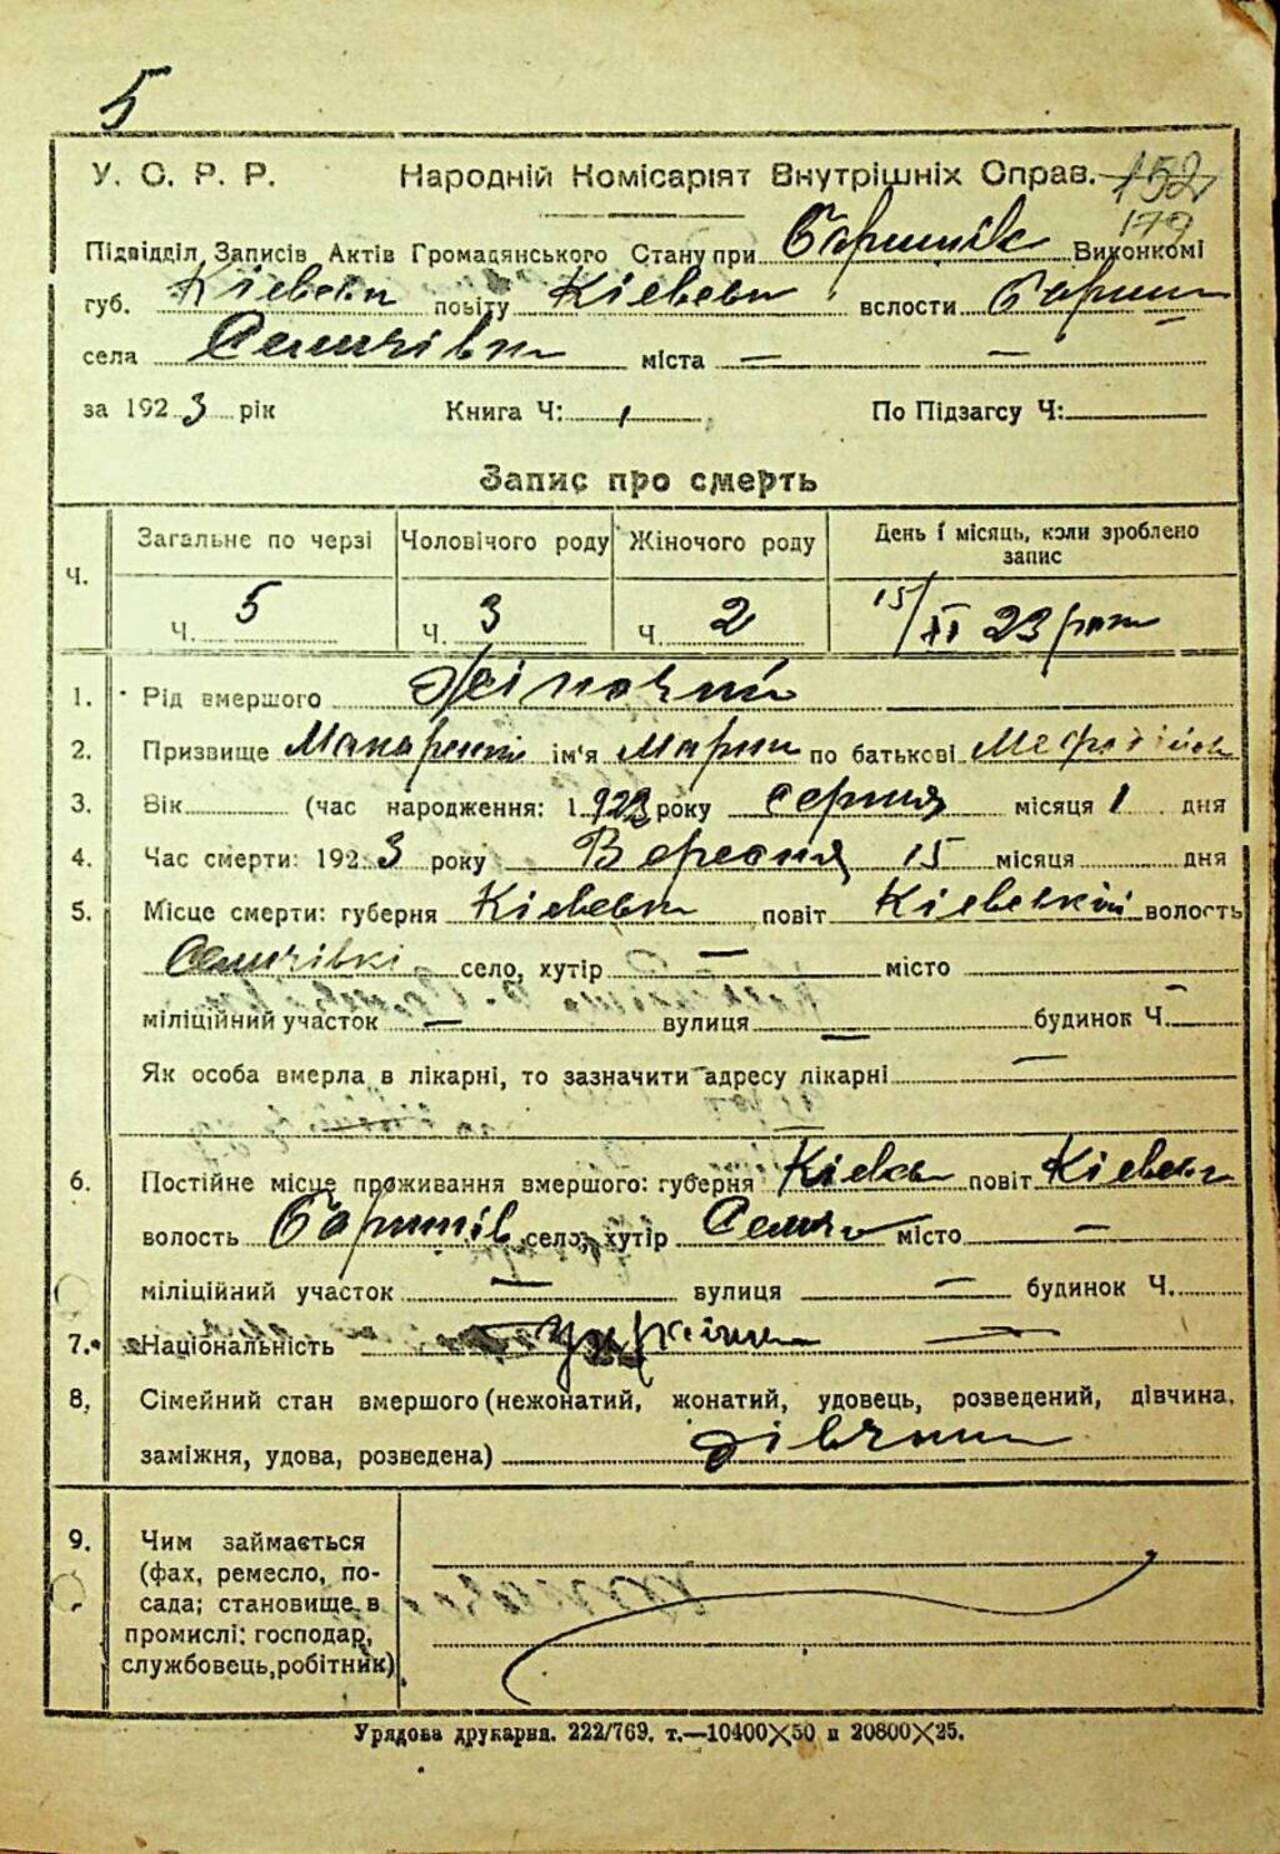 5
У. С. Р. Р. Народній Комісаріят Внутрішніх Справ. 152
179
Підвідділ Записів Актів Громадянського Стану при Баришівск Виконкомі
губ. Кіевськ повіту Кіевськ волости Бариш
села Селичівки міста —
за 1923 рік Книга Ч: 1 По Підзагсу Ч:
Запис про смерть
Ч. Загальне по черзі Чоловічого роду Жіночого роду День і місяць, коли зроблено запис
Ч. 5 Ч. 3 Ч. 2 15/XI 23 рок
1. Рід вмершого Жіночий
2. Призвище Макаренко ім'я Мария по батькові Мефодіївна
3. Вік (час народження: 1923 року серпня місяця 1 дня
4. Час смерти: 1923 року Вересня 15 місяця дня
5. Місце смерти: губерня Кіевськ повіт Кіевський волость
Селичівкі село, хутір — місто
міліційний участок — вулиця — будинок Ч. —
Як особа вмерла в лікарні, то зазначити адресу лікарні —
6. Постійне місце проживання вмершого: губерня Кіевськ повіт Кіевськ
волость Баришів село, хутір Селич місто —
міліційний участок — вулиця — будинок Ч.
7. Національність Українка —
8. Сімейний стан вмершого (нежонатий, жонатий, удовець, розведений, дівчина,
заміжня, удова, розведена) дівчина
9. Чим займається
(фах, ремесло, по-
сада; становище в
промислі: господар,
службовець, робітник)
Урядова друкарня. 222/769. т.—10400X50 и 20800X25.